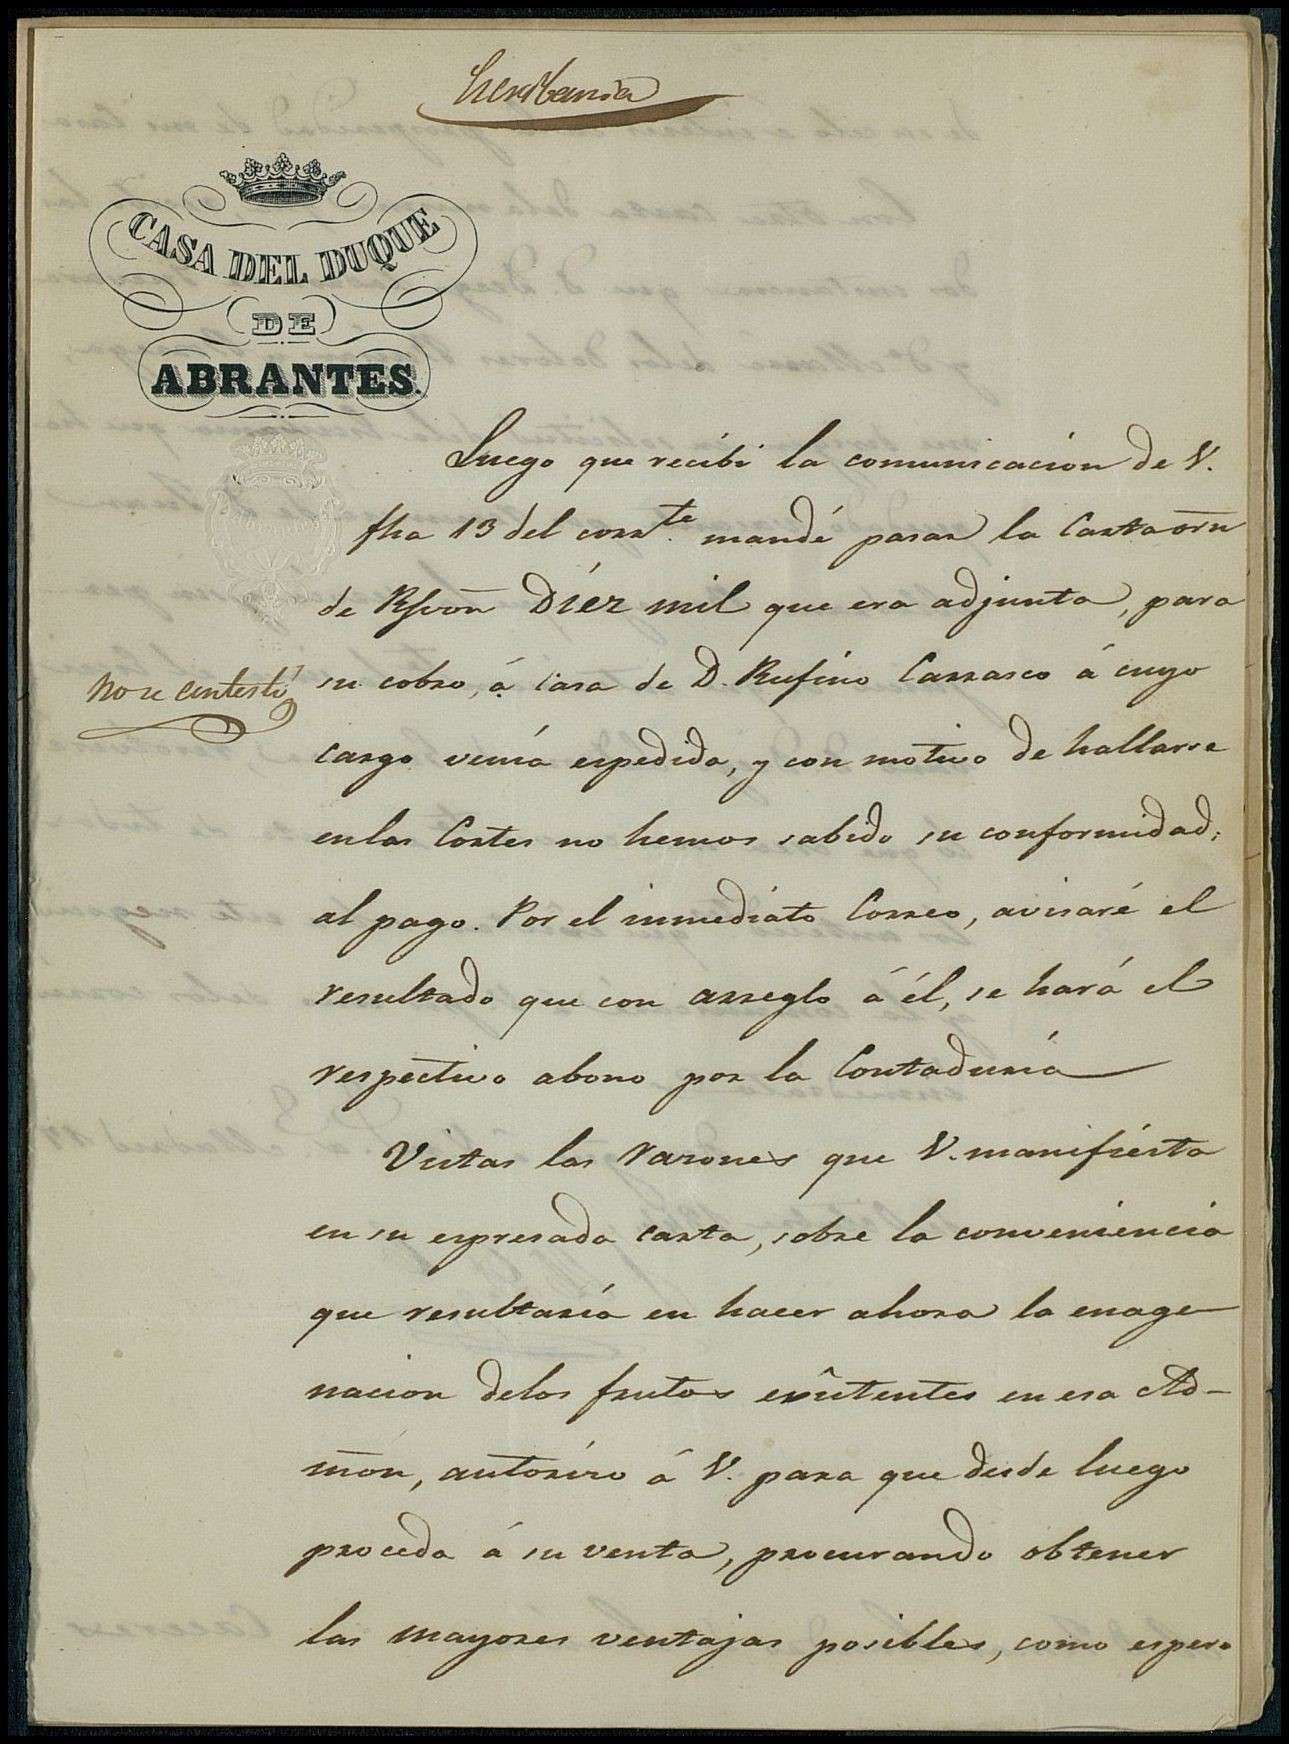 CASA DEL DUQUE
DE
ABRANTES.
Luego que recibi la comunicacion de V.
fha 13 del corr.te mandé pasar la Carta orn̄
de Rsvon̄ Diez mil que era adjunta, para
su cobro, á casa de D. Rufino Carrasco á cuyo
No se contestó
cargo venía espedida, y con motivo de hallarse
en las Cortes no hemos sabido su conformidad;
al pago. Por el inmediato Correo, avisaré el
resultado que con arreglo á él, se hará el
respectivo abono por la Contaduría
Vistas las razones que V. manifiesta
en su espresada carta, sobre la conveniencia
que resultaría en hacer ahora la enage-
nacion delos frutos existentes en esa Ad-
mōn, autorizo á V. para que desde luego
proceda á su venta, procurando obtener
las mayores ventajas posibles, como espero